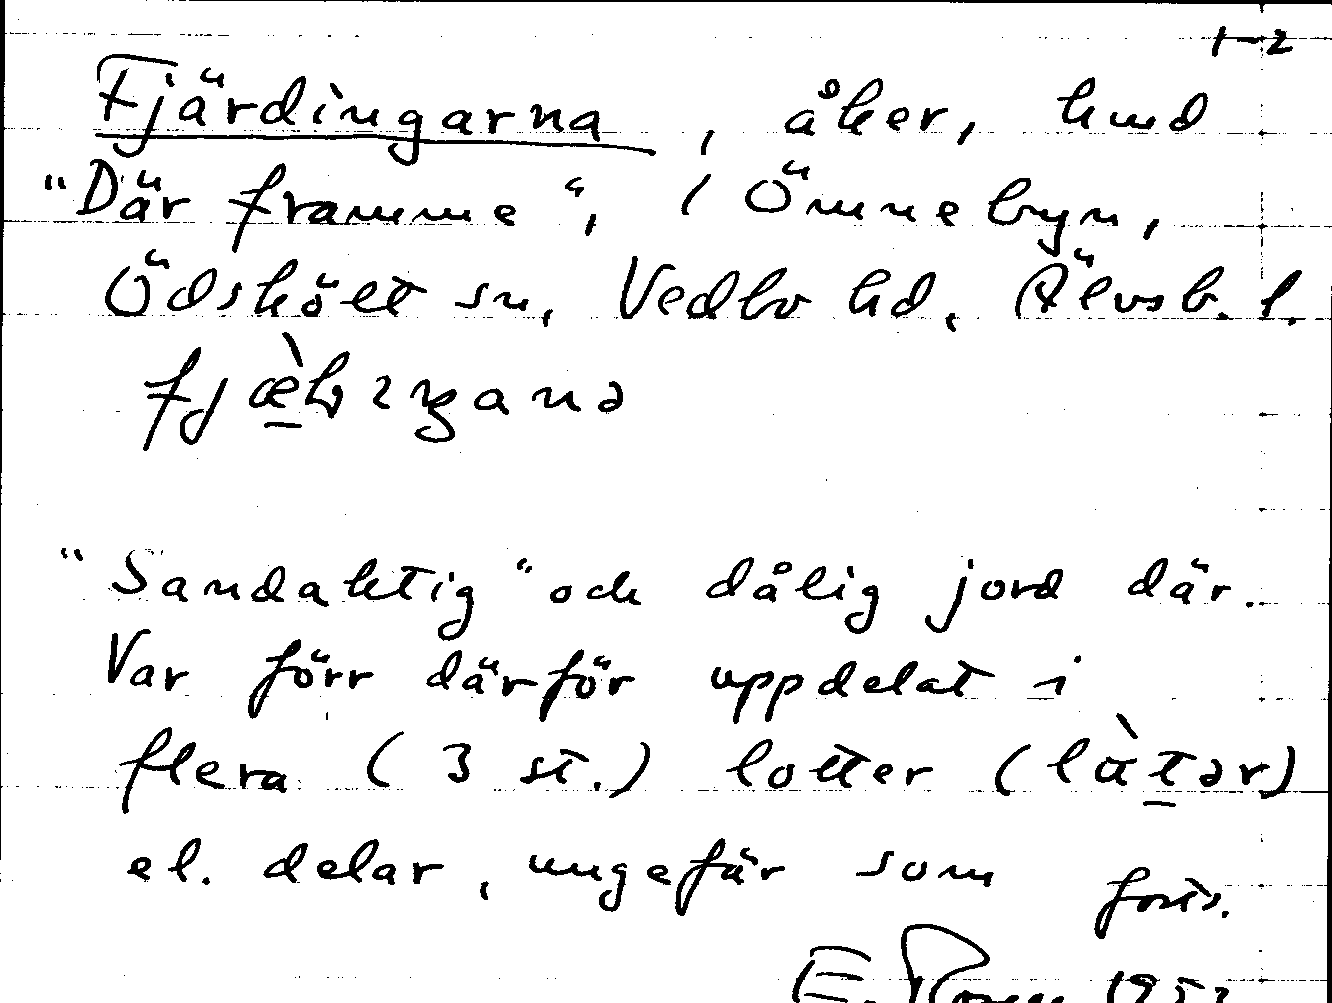 1-2
Fjärdingarna, åker, kmd
"Där framme", i Ömnebyn,
Ödskölt sn, Vedbo hd, Älvsb. l.
"Sandaktig" och dålig jord där.
Var förr därför uppdelat i
flera (3 st.) lotter (làtər)
el. delar, ungefär som forts.
E.